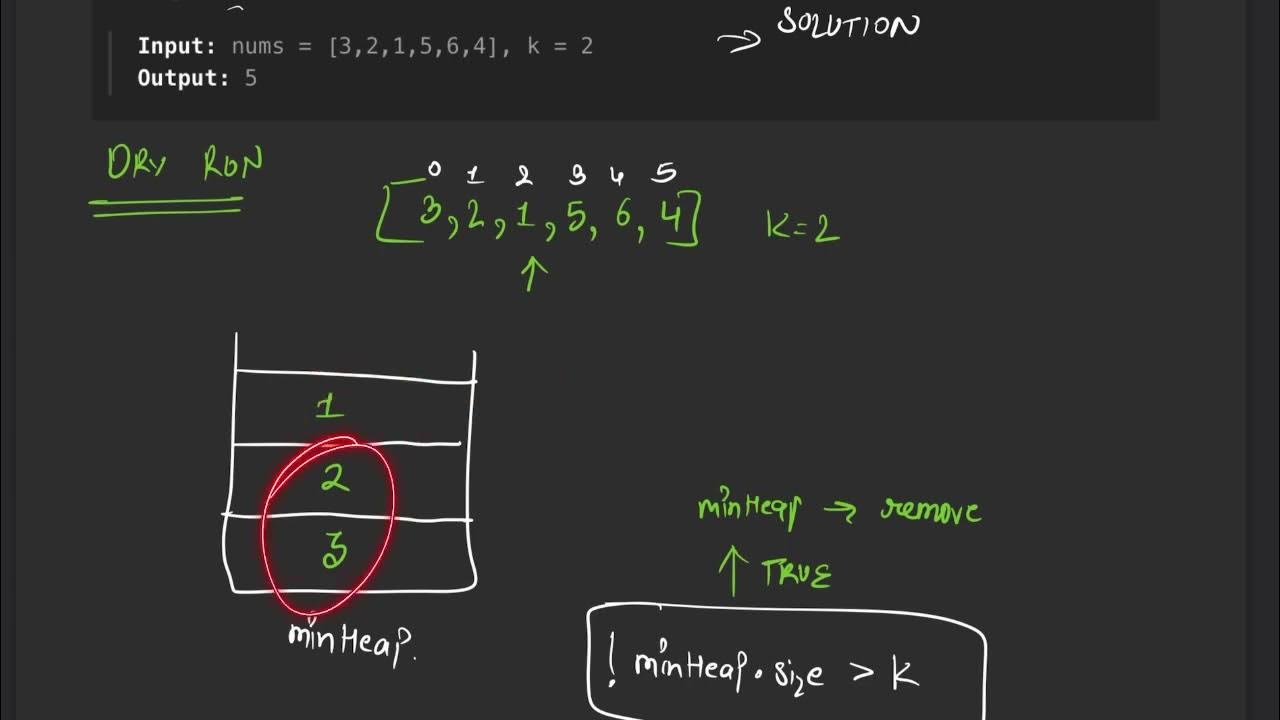 Input: nums = [3,2,1,5,6,4], k = 2
Output: 5
→ SOLUTION
DRY RUN
0 1 2 3 4 5
[3,2,1,5,6,4] K=2
↑
1
2
3
minHeap.
minHeap → remove
↑ TRUE
! minHeap.size > K